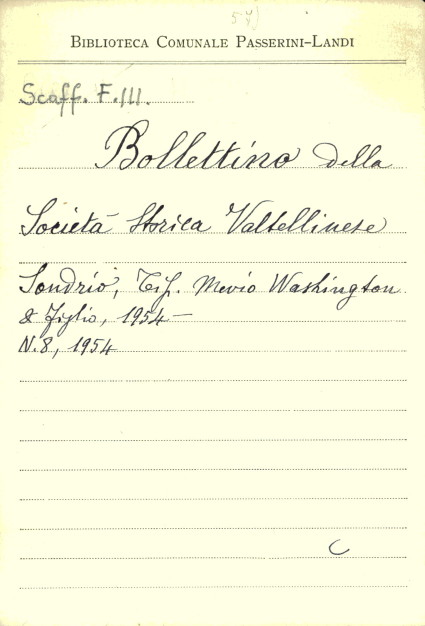 54)
BIBLIOTECA COMUNALE PASSERINI-LANDI
Scaff. F.III.
Bollettino della
Società Storica Valtellinese
Sondrio, Tip. Mevio Washington
& Figlio, 1954-
N.8, 1954
C